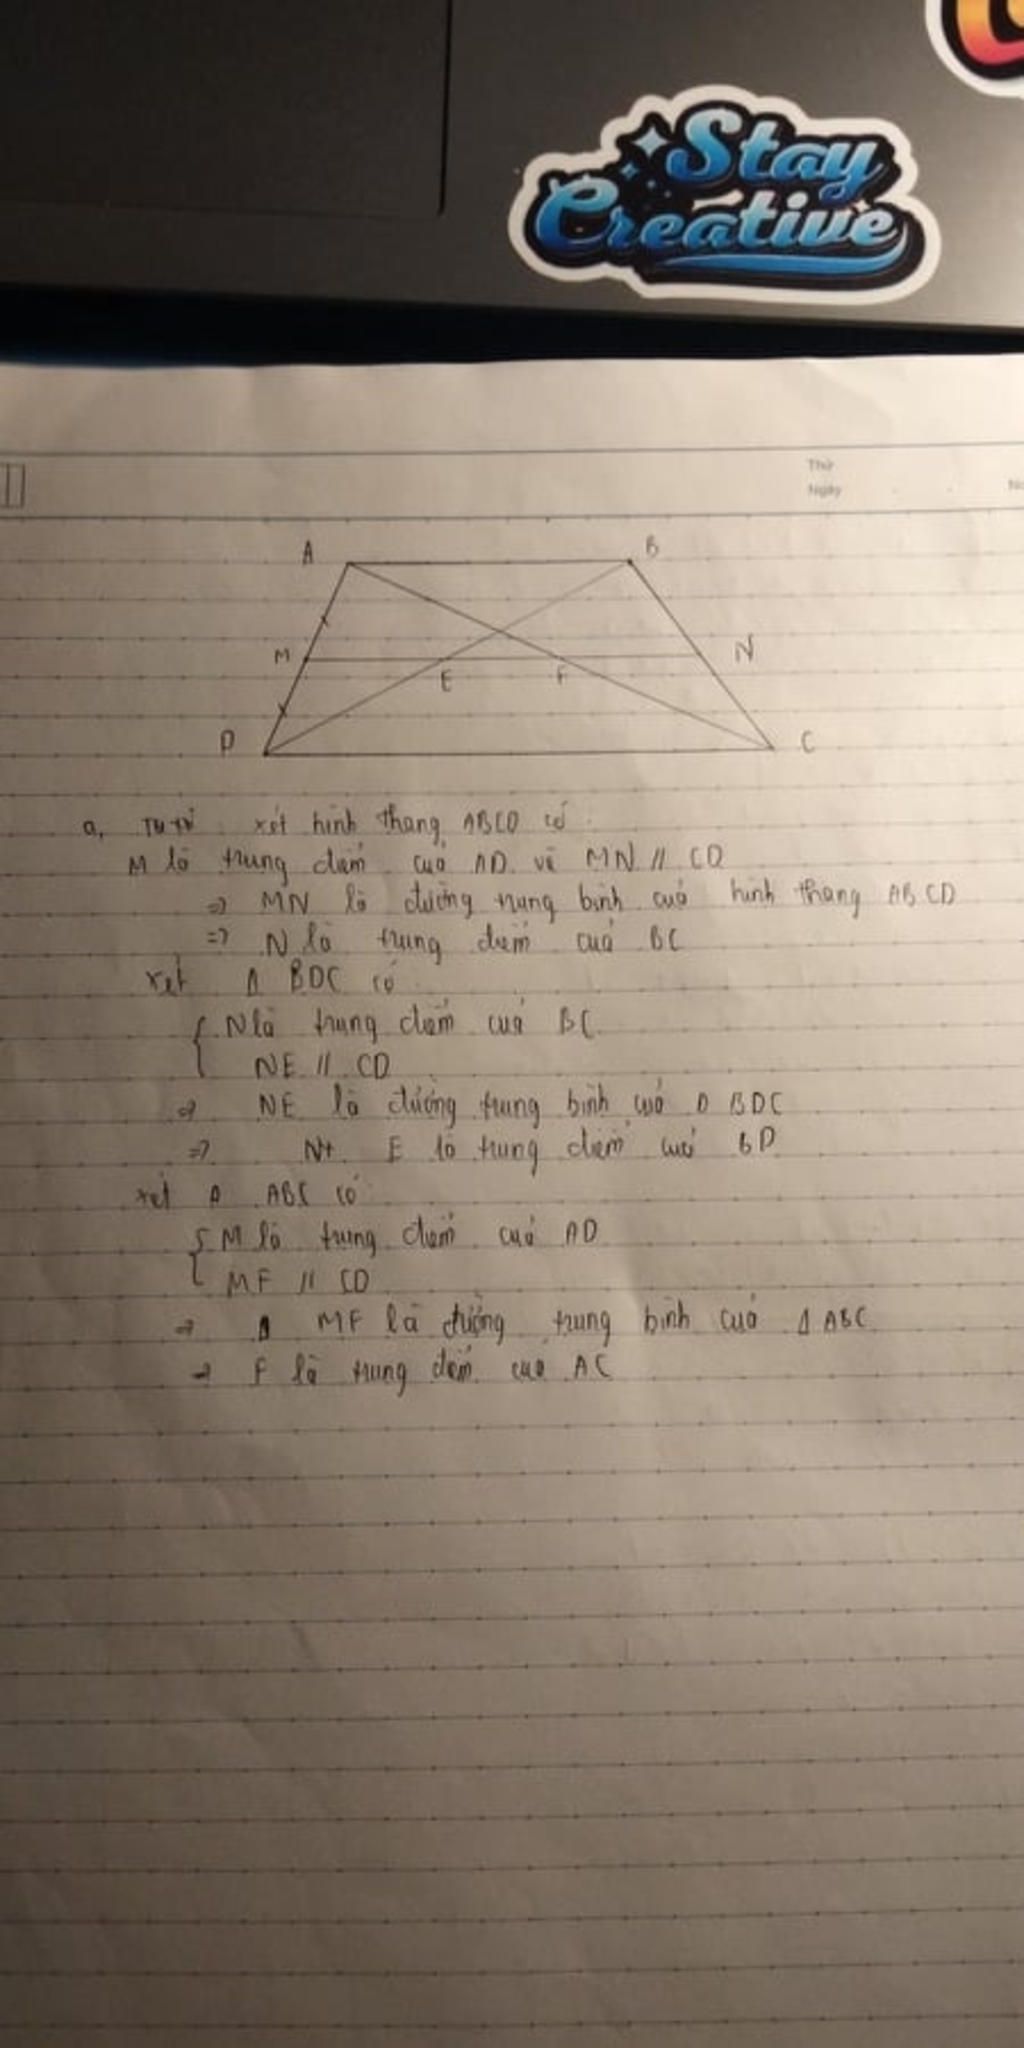 Stay
Creative
Thứ
Ngày
No
A
B
M
N
E
F
D
C
a, xét hình thang ABCD có
M là trung điểm của AD và MN // CD
=> MN là đường trung bình của hình thang ABCD
=> N là trung điểm của BC
xét Δ BDC có
{ N là trung điểm của BC
NE // CD
=> NE là đường trung bình của Δ BDC
=> E là trung điểm của BD
xét Δ ABC có
{ M là trung điểm của AD
MF // CD
=> Δ MF là đường trung bình của Δ ABC
=> F là trung điểm của AC